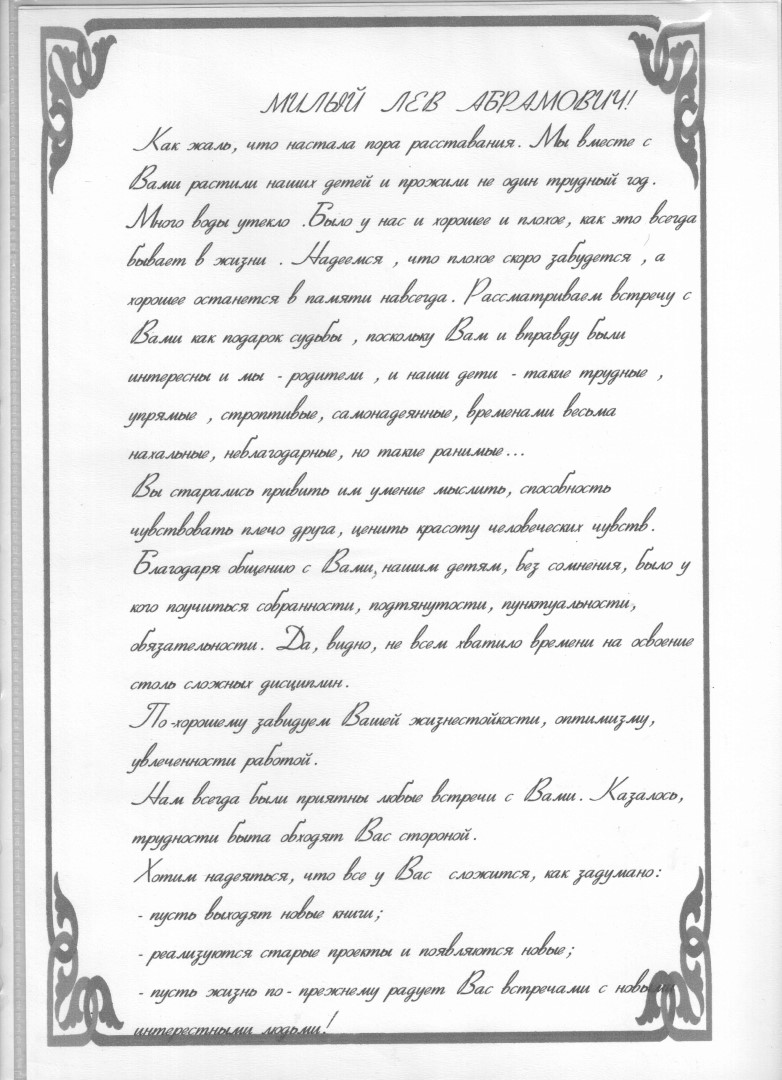 МИЛЫЙ ЛЕВ АБРАМОВИЧ!
Как жаль, что настала пора расставания. Мы вместе с
Вами растили наших детей и прожили не один трудный год.
Много воды утекло .Было у нас и хорошее и плохое, как это всегда
бывает в жизни . Надеемся , что плохое скоро забудется , а
хорошее останется в памяти навсегда. Рассматриваем встречу с
Вами как подарок судьбы , поскольку Вам и вправду были
интересны и мы - родители , и наши дети - такие трудные ,
упрямые , строптивые, самонадеянные, временами весьма
нахальные, неблагодарные, но такие ранимые...
Вы старались привить им умение мыслить, способность
чувствовать плечо друга, ценить красоту человеческих чувств.
Благодаря общению с Вами, нашим детям, без сомнения, было у
кого поучиться собранности, подтянутости, пунктуальности,
обязательности. Да, видно, не всем хватило времени на освоение
столь сложных дисциплин.
По-хорошему завидуем Вашей жизнестойкости, оптимизму,
увлеченности работой.
Нам всегда были приятны любые встречи с Вами. Казалось,
трудности быта обходят Вас стороной.
Хотим надеяться, что все у Вас сложится, как задумано:
- пусть выходят новые книги;
- реализуются старые проекты и появляются новые;
- пусть жизнь по- прежнему радует Вас встречами с новыми
интерестными людьми!